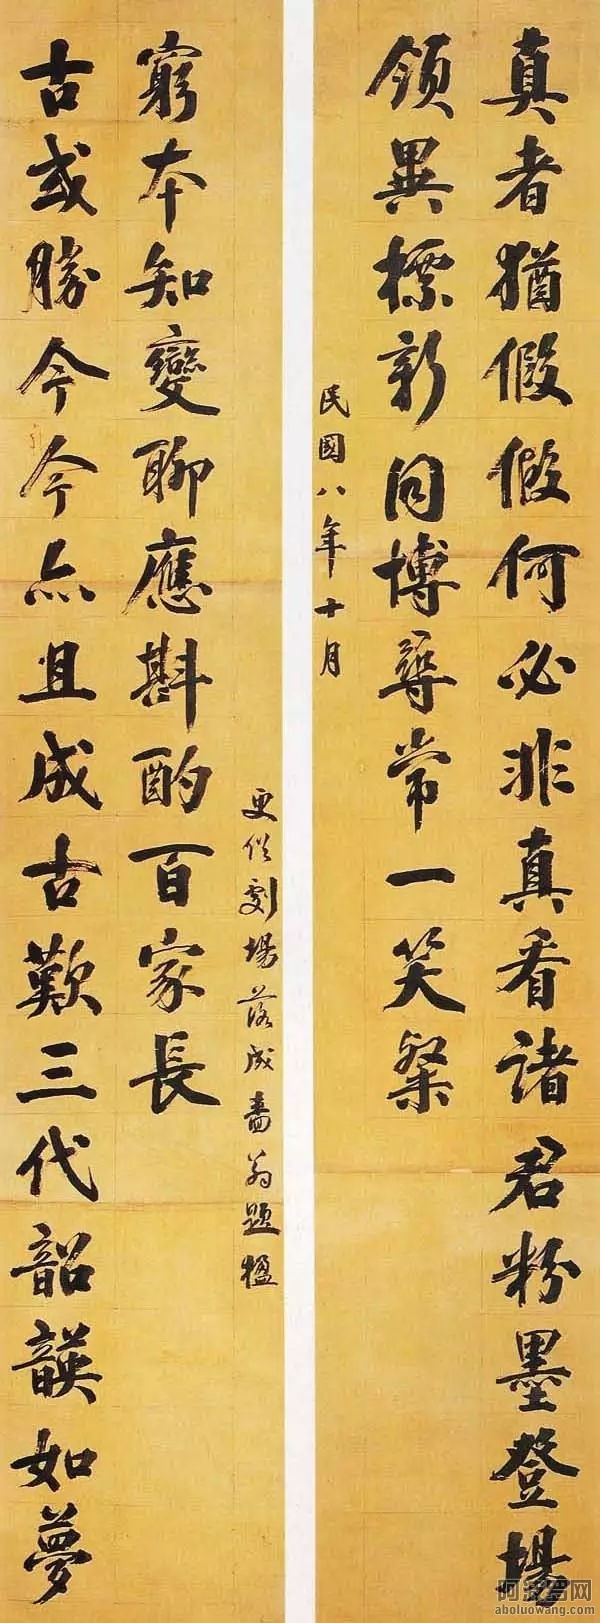 真者猶假假何必非真看諸君粉墨登場
領異標新同博尋常一笑粲
民國八年十月
古或勝今今亦且成古歎三代韶韺如夢
窮本知變聊應斟酌百家長
更俗劇場落成嗇翁題楹
阿波罗网
aboluowang.com